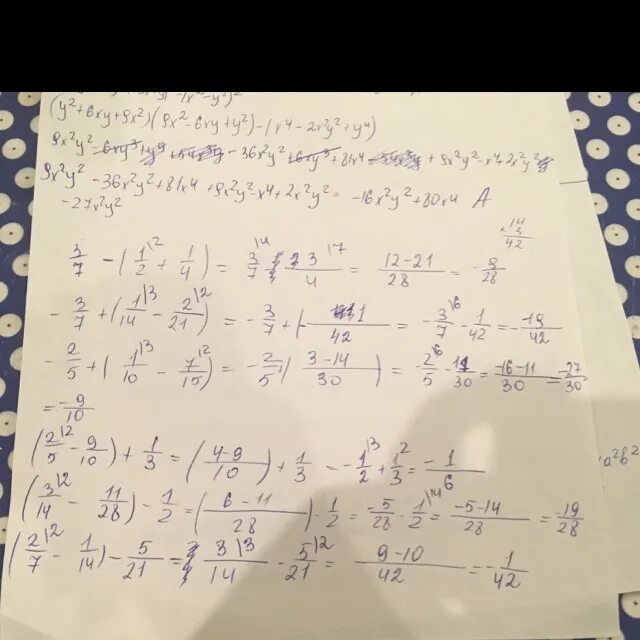 (y²+6xy+9x²)(9x²-6xy+y²)-(x4-2x²y²+y4)
9x²y²-6xy³+y4+54x³y-36x²y²+6xy³+81x4-54x³y+9x²y²-x4+2x²y²-y4
9x²y²-36x²y²+81x4+9x²y²-x4+2x²y²=-16x²y²+80x4 A
-27x²y²
14
×3
42
3/7-(1/2|2+1/4)=3/7|4-3/4|7=(12-21)/28=-9/28
-3/7+(1/14|3-2/21|2)=-3/7+(-1/42)=-3/7|6-1/42=-19/42
-2/5+(1/10|3-7/15|2)=-2/5+((3-14)/30)=-2/5|6-11/30=(-16-11)/30=-27/30
=-9/10
(2/5|2-9/10)+1/3=((4-9)/10)+1/3=-1/2|3+1/3|2=-1/6
(3/14|2-11/28)-1/2=((6-11)/28)-1/2=-5/28-1/2|14=(-5-14)/28=-19/28
(2/7|2-1/14)-5/21=3/14|3-5/21|2=(9-10)/42=-1/42
a²b²